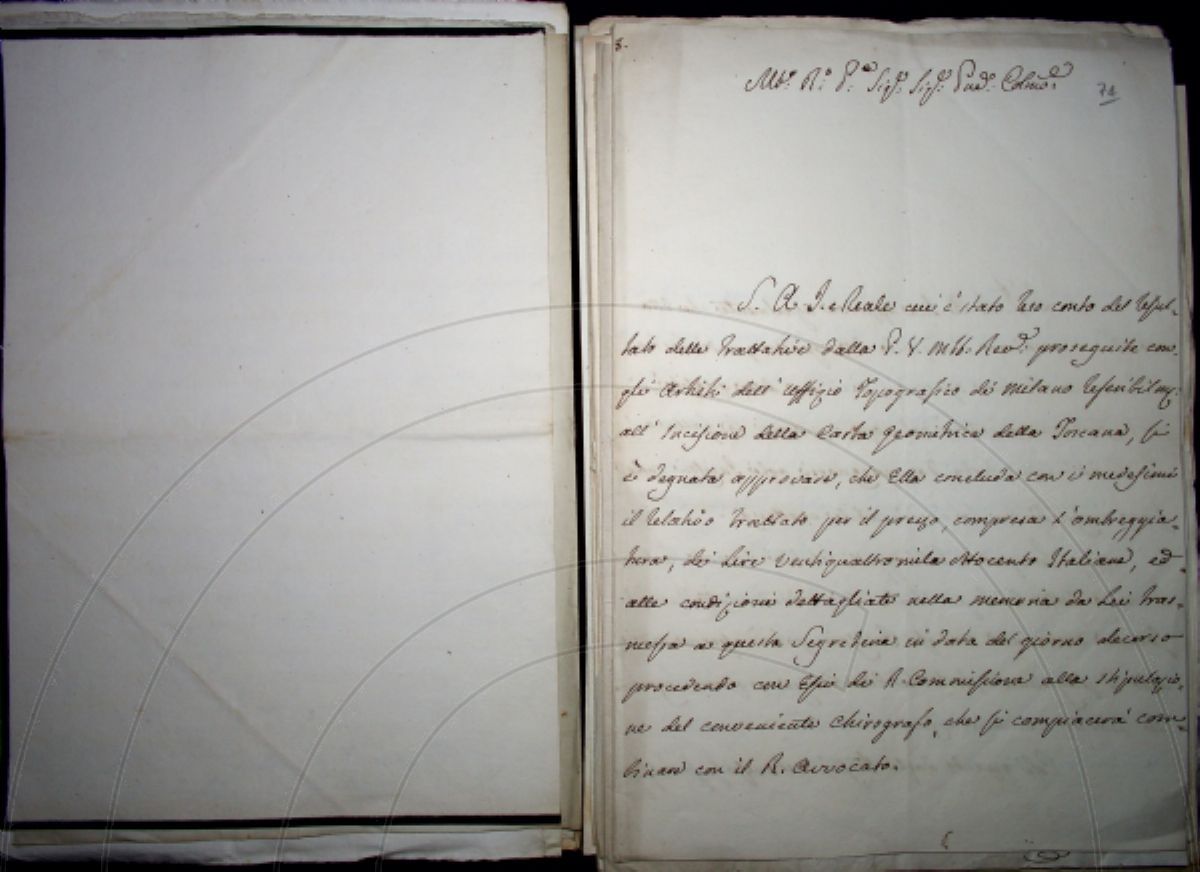 8.
Mto. Ro. Pre. Sigr. Sigr. Pne. Colmo.
74
S. A. I. e Reale cui è stato reso conto del resul-
tato delle trattative dalla P. V. Mto. Revda. proseguite con
gli Artisti dell' Uffizio Topografico di Milano referibilmte.
all' Incisione della Carta Geometrica della Toscana, si
è degnata approvare, che Ella concluda con i medesimi
il relativo trattato per il prezzo, compresa l'ombreggia-
tura, di Lire Ventiquattromila Ottocento Italiane, ed
alle condizioni dettagliate nella memoria da Lei tras-
messa a questa Segreteria in data del giorno decorso
procedendo con Essi di R. Commissione alla stipulazio-
ne del conveniente Chirografo, che si compiacerà com-
binare con il R. Avvocato.